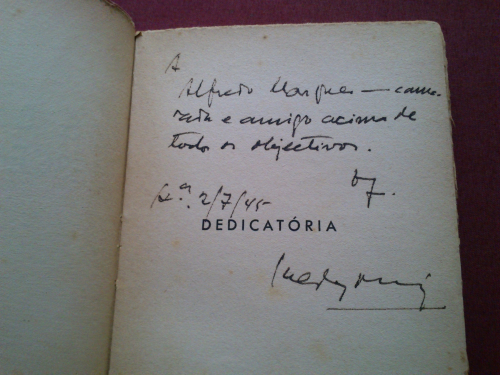 A
Alfredo Marques — cama-
rada e amigo acima de
todos os objectivos.
2/7/45
DEDICATÓRIA